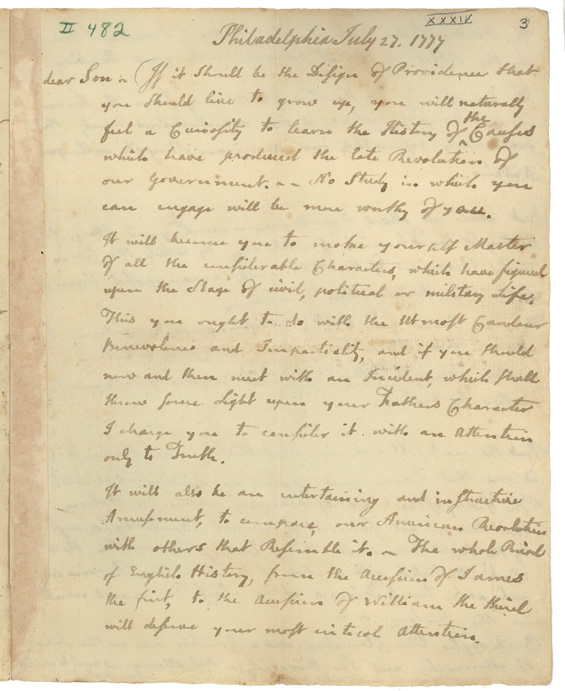 II 482
XXXIV
3
Philadelphia July 27. 1777
dear Son ~ If it should be the Design of Providence that
you should live to grow up, you will naturally
feel a Curiosity to learn the History of the Causes
which have produced the late Revolution of
our Government. ~ ~ No Study in which you
can engage will be more worthy of you.
It will become you to make yourself Master
of all the considerable Characters, which have figured
upon the Stage of civil, political or military Life.
This you ought to do with the Utmost Candour
Benevolence and Impartiality, and if you should
now and then meet with an Incident, which shall
throw some Light upon your Fathers Character
I charge you to consider it with an Attention
only to Truth.
It will also be an entertaining and instructive
Amusement, to compare our American Revolution
with others that Resemble it. ~ The whole Period
of English History, from the Accession of James
the first, to the Accession of William the third
will deserve your most critical Attention.